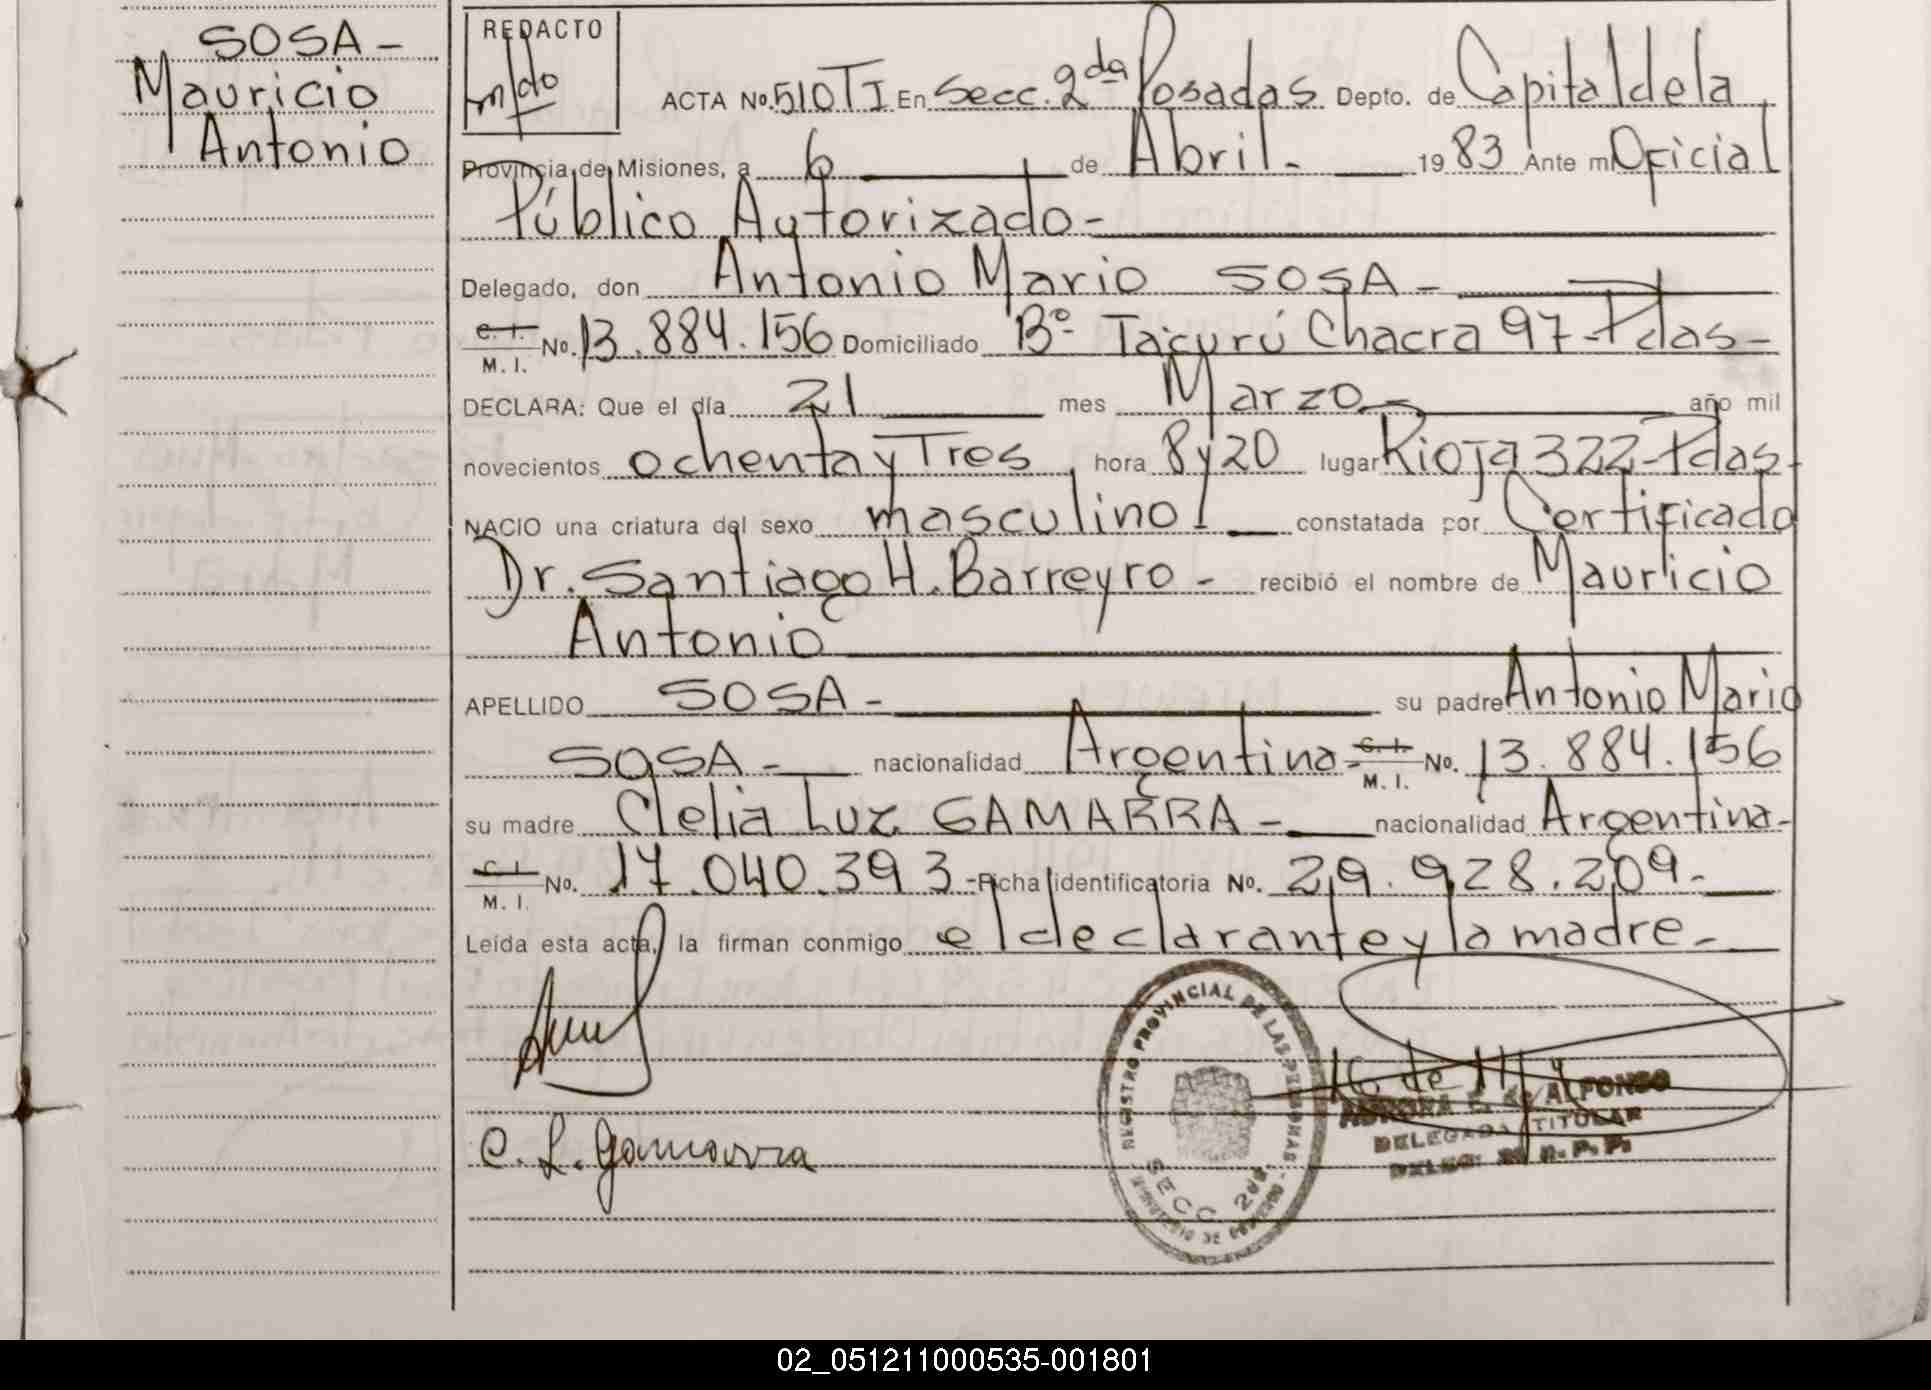 SOSA -
Mauricio
Antonio
REDACTO
m/do
ACTA No. 510 TI En Secc. 2da Posadas Depto. de Capital de la
Provincia de Misiones, a 6 de Abril - 1983 Ante mi Oficial
Público Autorizado -
Delegado, don Antonio Mario SOSA -
C. I. M. I. No. 13.884.156 Domiciliado Bº Tacurú Chacra 97 - Pdas -
DECLARA: Que el día 21 mes Marzo - año mil
novecientos ochenta y Tres, hora 8 y 20 lugar Rioja 322 - Pdas -
NACIO una criatura del sexo masculino constatada por Certificado
Dr. Santiago H. Barreyro - recibió el nombre de Mauricio
Antonio
APELLIDO SOSA - su padre Antonio Mario
SOSA - nacionalidad Argentina - C. I. M. I. No. 13.884.156
su madre Clelia Luz GAMARRA - nacionalidad Argentina -
C. I. M. I. No. 17.040.393 - Ficha identificatoria No. 29.928.209 -
Leída esta acta, la firman conmigo el declarante y la madre -
C. L. Gamarra
REGISTRO PROVINCIAL DE LAS PERSONAS
SECC 2da
MINISTERIO DE GOBIERNO
ALFONSO
DELEGADA TITULAR
02_051211000535-001801